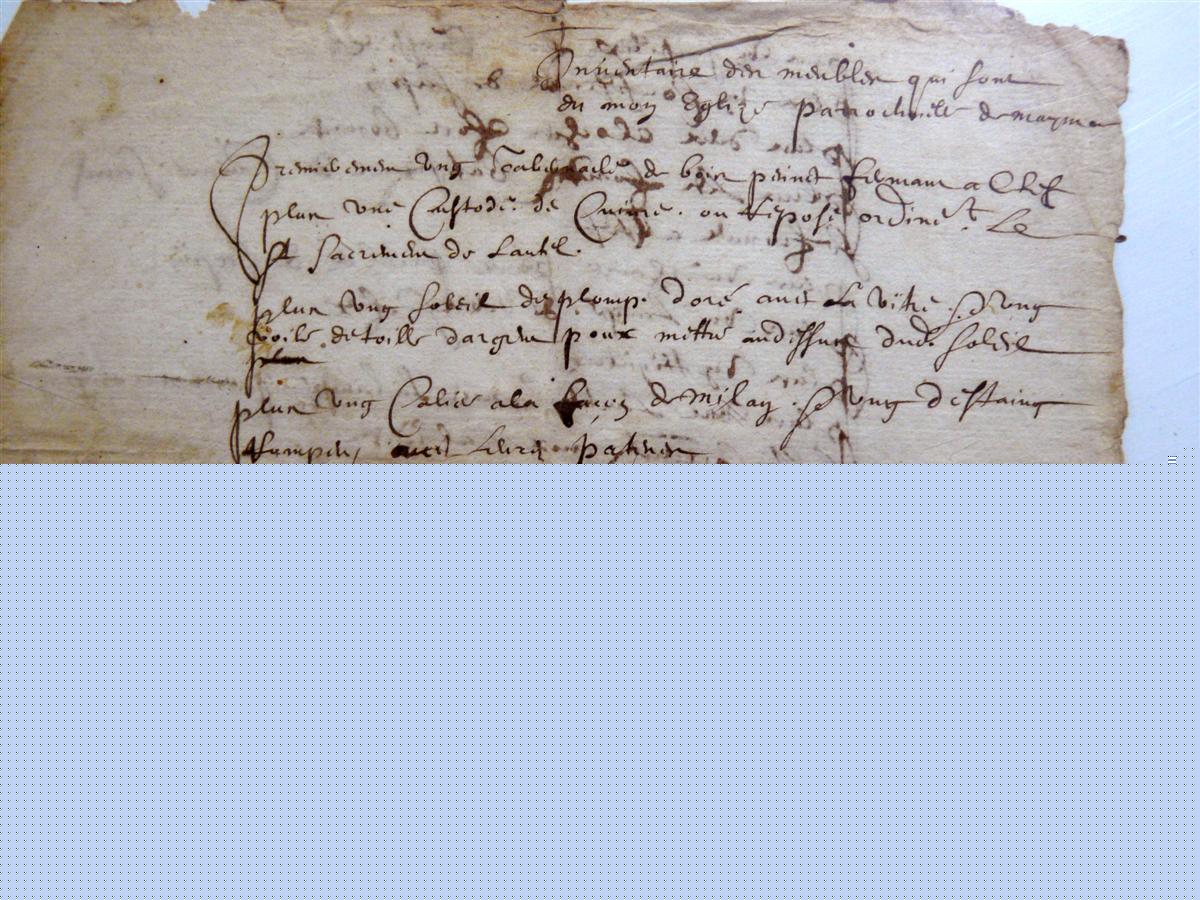 Inventaire des meubles qui sont
en mon Eglize parrochielle de
Premierement ung Tabernacle de bois peinct fermant a Clef
plus une Custode de Cuivre ou Repose ordinet Le
st Sacrement de Lautel.
plus ung soleil de plomp doré avec La vitre & ung
voile de toille dargent pour mettre audessus dud. soleil
plus
plus ung Calice a la façon de milan & ung destaing
Rompeu, avec Leurs patenes